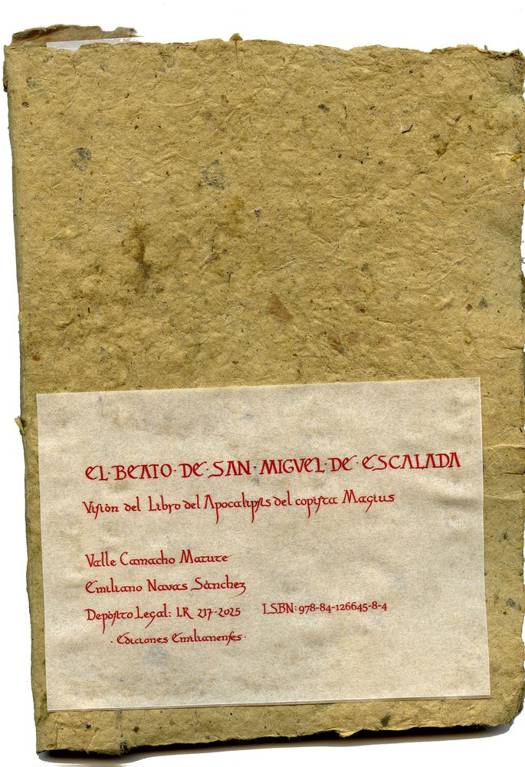 EL·BEATO·DE·SAN·MIGVEL·DE·ESCALADA
Visiòn del Libro del Apocalipsis del copista Magius
Valle Camacho Matute
Emiliano Navas Sànchez
Depòsito Legal: LR 217-2025 ISBN: 978-84-126645-8-4
·Ediciones Emilianenses·